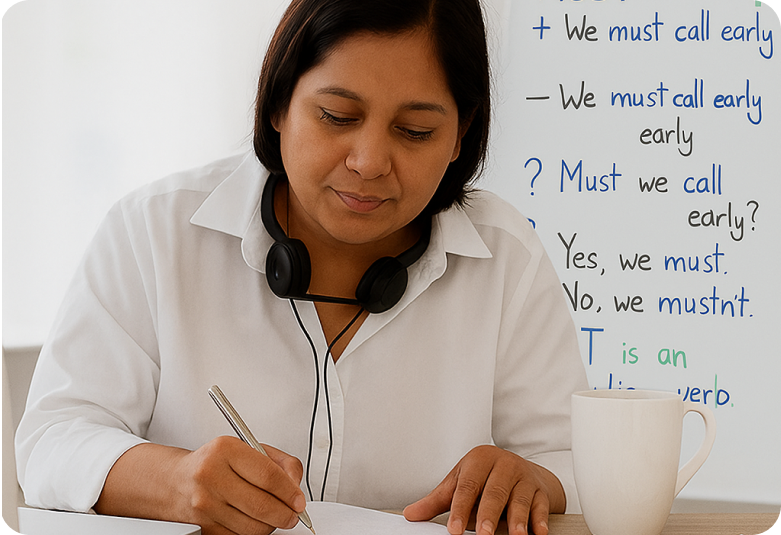 + We must call early
– We must call early
early
? Must we call
early?
Yes, we must.
No, we mustn't.
T is an
verb.